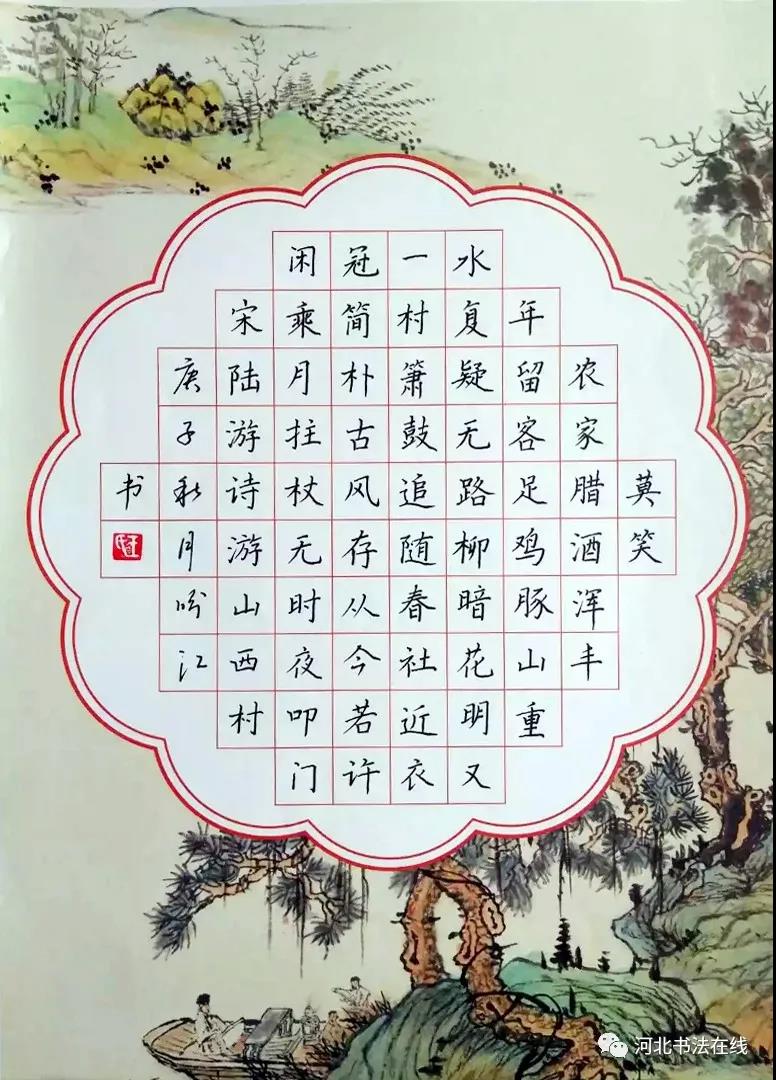 莫笑
农家腊酒浑丰
年留客足鸡豚山重
水复疑无路柳暗花明又
一村箫鼓追随春社近衣
冠简朴古风存从今若许
闲乘月拄杖无时夜叩门
宋陆游诗游山西村
庚子秋月吟江
书
河北书法在线